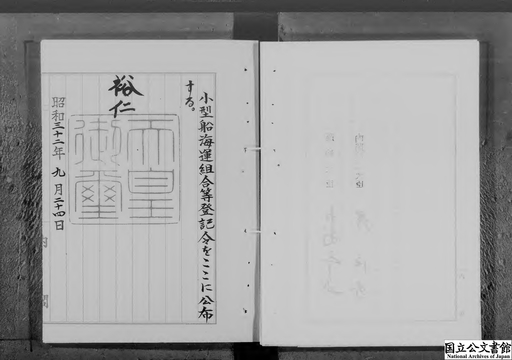 小型船海運組合等登記令をここに公布
する。
裕仁
天皇御璽
昭和三十二年九月二十四日
内閣
国立公文書館
National Archives of Japan